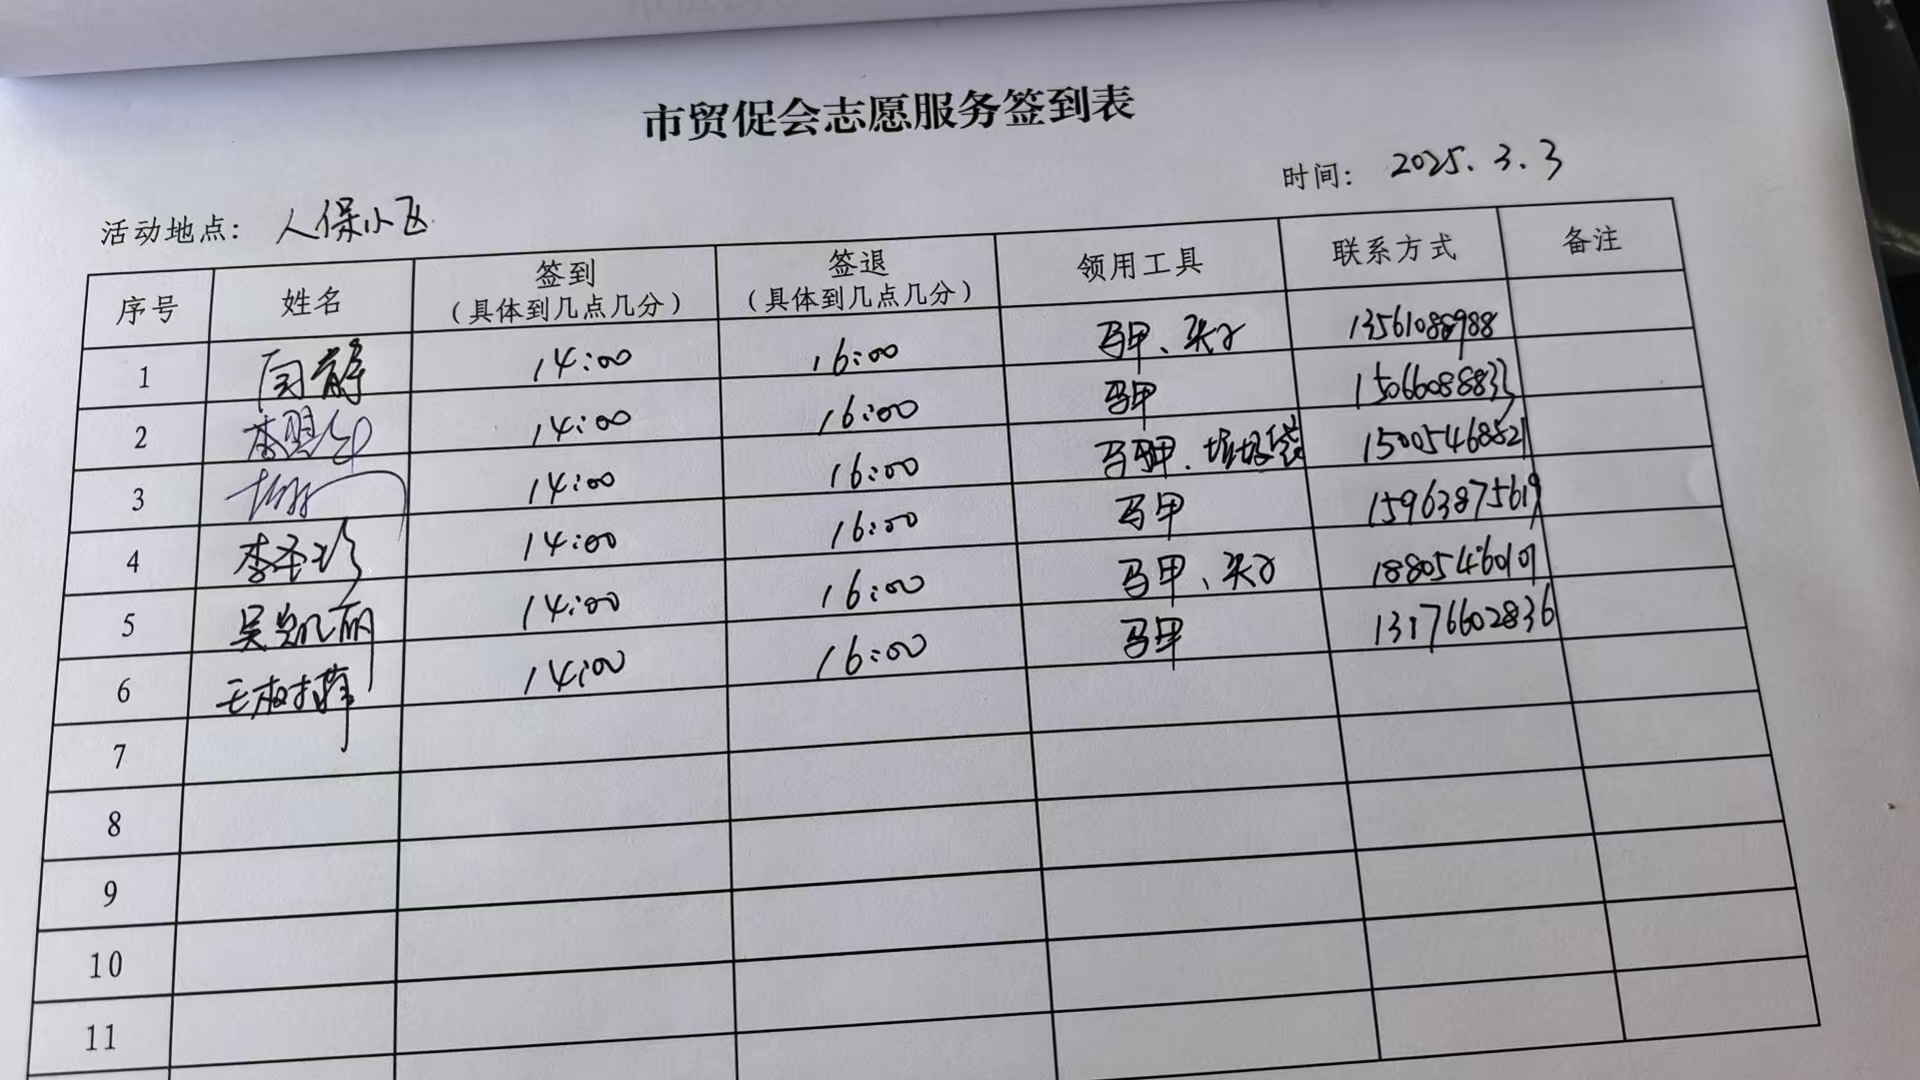 市贸促会志愿服务签到表
时间： 2025.3.3
活动地点： 人保小区
序号 姓名 签到（具体到几点几分） 签退（具体到几点几分） 领用工具 联系方式 备注
1 闫静 14:00 16:00 马甲、夹子 13561088988
2 李 14:00 16:00 马甲 15066088833
3 14:00 16:00 马甲、垃圾袋 15005468521
4 李圣珍 14:00 16:00 马甲 15963875619
5 吴凯丽 14:00 16:00 马甲、夹子 18805460107
6 王 14:00 16:00 马甲 13176602836
7
8
9
10
11